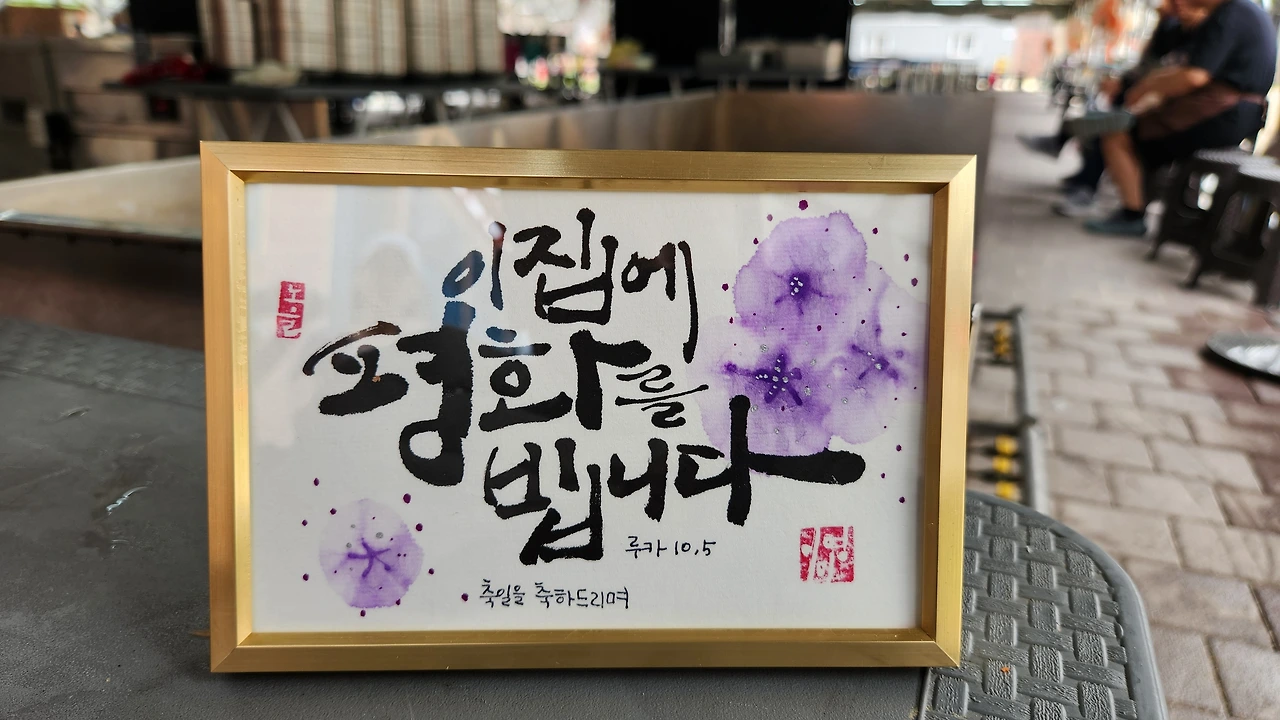 이 집에
평화를
빕니다
루카 10,5
축일을 축하드리며